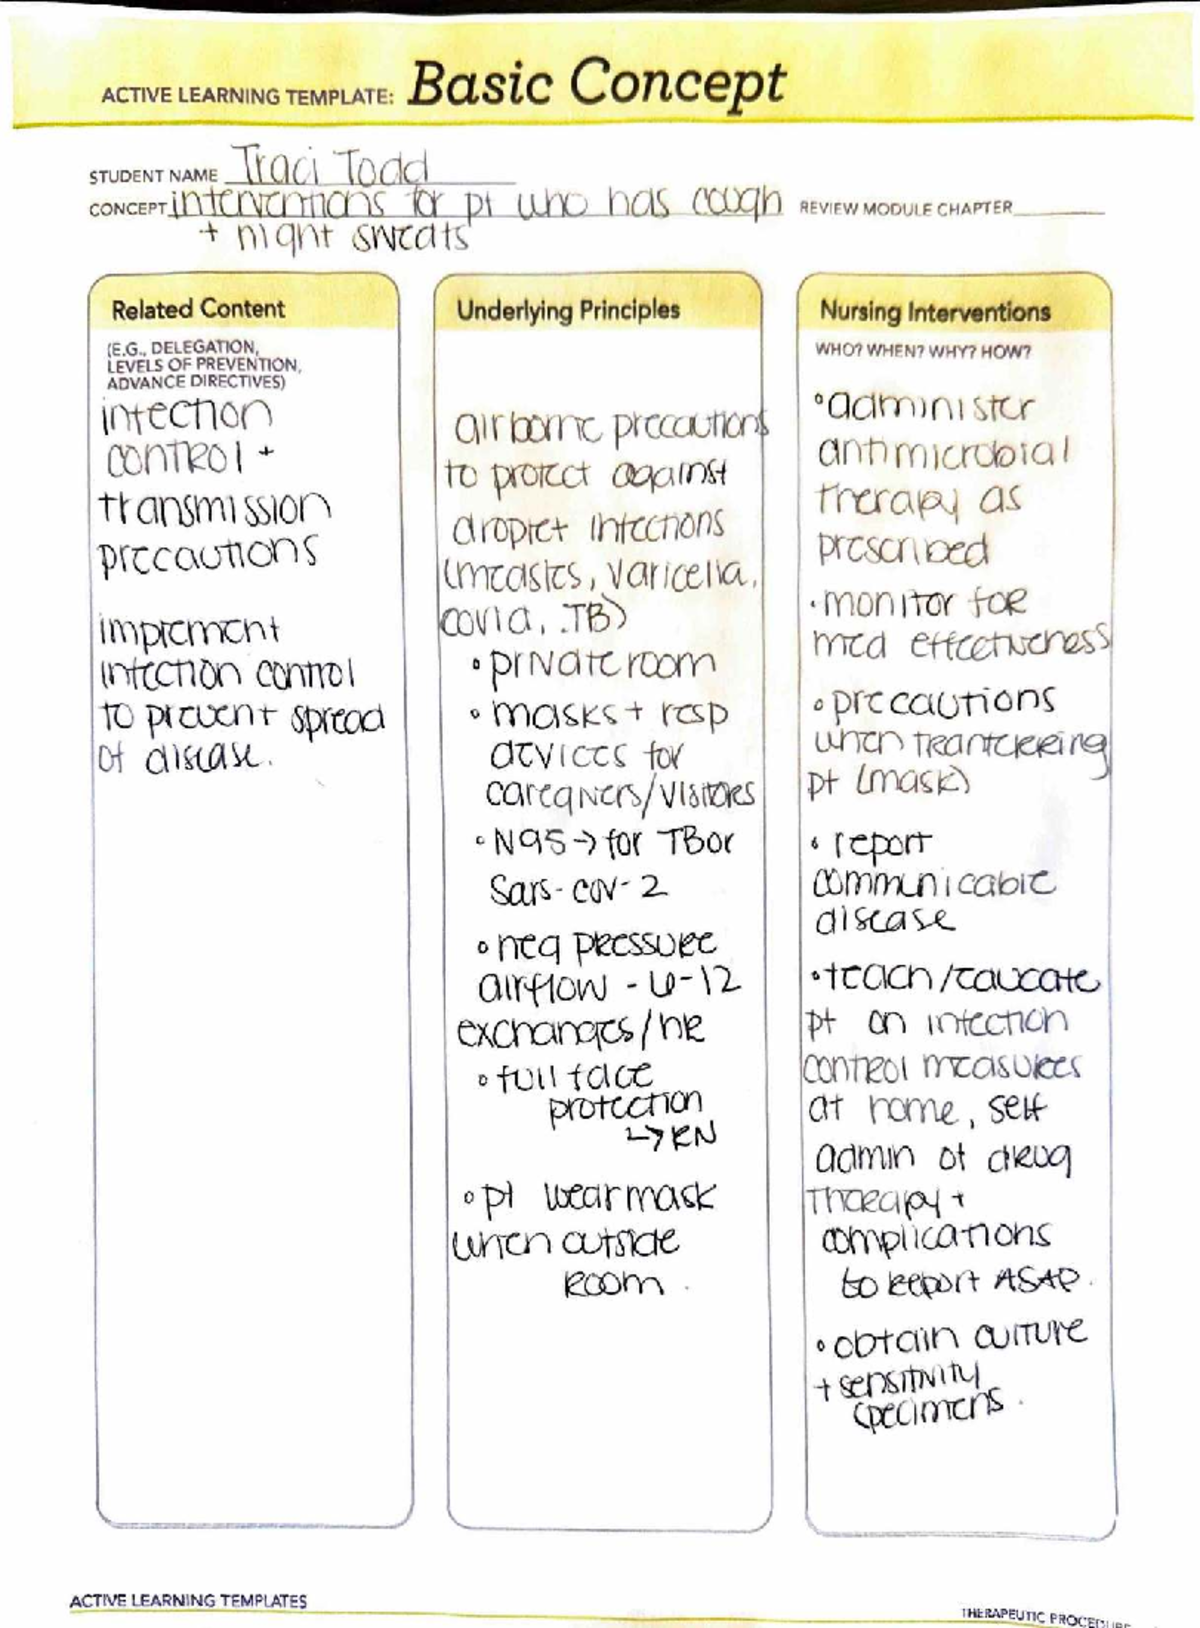 ACTIVE LEARNING TEMPLATE: Basic Concept
STUDENT NAME Traci Todd
CONCEPT interventions for pt who has cough REVIEW MODULE CHAPTER
+ night sweats
Related Content
(E.G., DELEGATION,
LEVELS OF PREVENTION,
ADVANCE DIRECTIVES)
infection
control +
transmission
precautions
implement
infection control
to prevent spread
of disease.
Underlying Principles
airborne precautions
to protect against
droplet infections
(measles, varicella,
covid, TB)
• private room
• masks + resp
devices for
caregivers/visitors
• N95 → for TB or
Sars-cov-2
• neg pressure
airflow - 6-12
exchanges/hr
• full face
protection
↳ RN
• pt wear mask
when outside
room.
Nursing Interventions
WHO? WHEN? WHY? HOW?
• administer
antimicrobial
therapy as
prescribed
• monitor for
med effectiveness
• precautions
when tranfering
pt (mask)
• report
communicable
disease
• teach/educate
pt on infection
control measures
at home, self
admin of drug
therapy +
complications
to report ASAP.
• obtain culture
+ sensitivity
specimens.
ACTIVE LEARNING TEMPLATES
THERAPEUTIC PROCEDURE